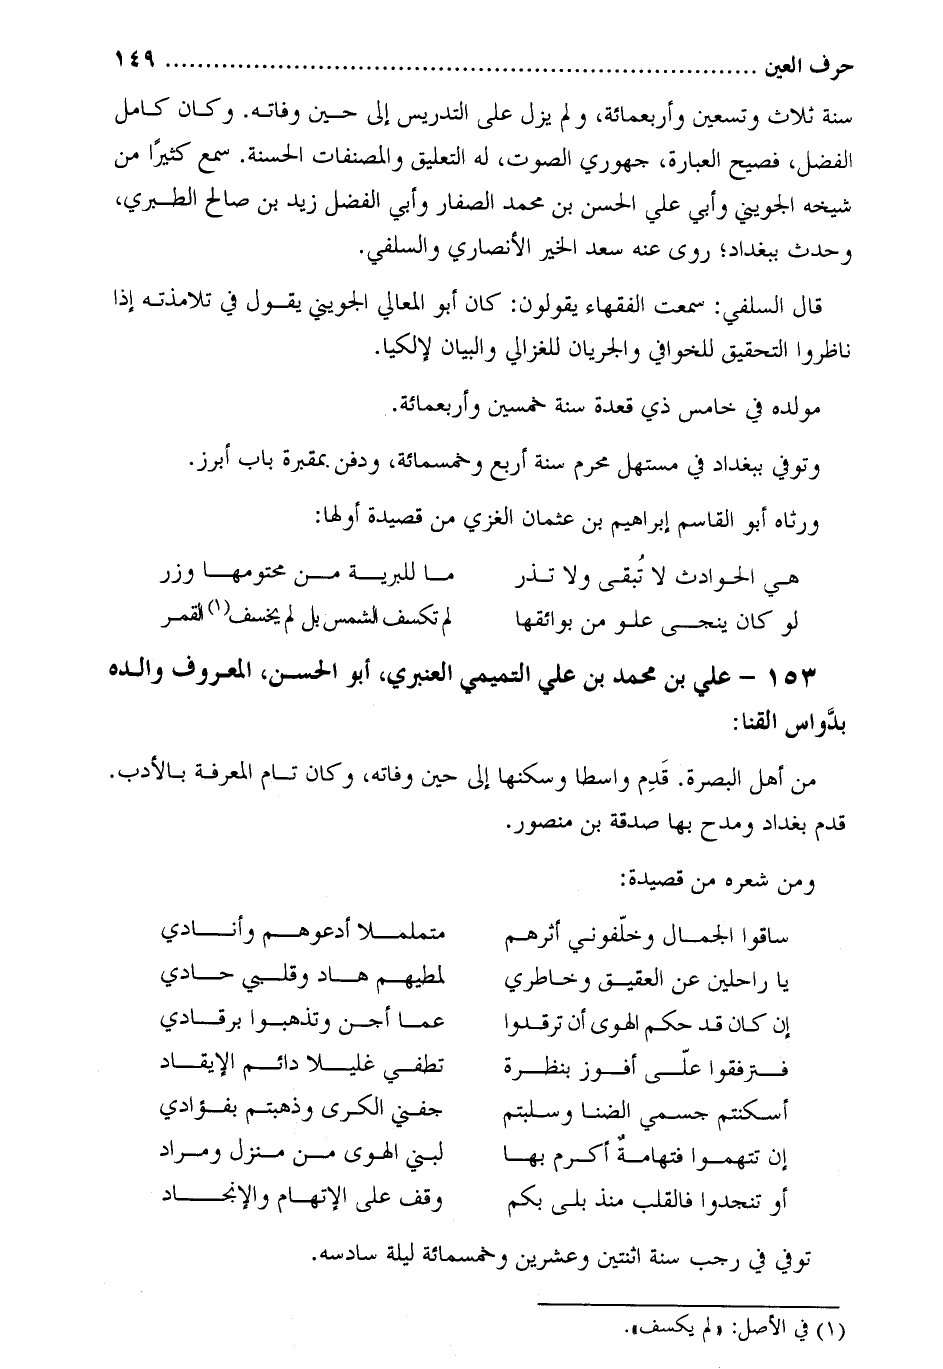 حرف العين .......................................................................... ١٤٩
سنة ثلاث وتسعين وأربعمائة، ولم يزل على التدريس إلى حين وفاته. وكان كامل
الفضل، فصيح العبارة، جهوري الصوت، له التعليق والمصنفات الحسنة. سمع كثيرًا من
شيخه الجويني وأبي علي الحسن بن محمد الصفار وأبي الفضل زيد بن صالح الطبري،
وحدث ببغداد؛ روى عنه سعد الخير الأنصاري والسلفي.
قال السلفي: سمعت الفقهاء يقولون: كان أبو المعالي الجويني يقول في تلامذته إذا
ناظروا التحقيق للخوافي والجريان للغزالي والبيان لإلكيا.
مولده في خامس ذي قعدة سنة خمسين وأربعمائة.
وتوفي ببغداد في مستهل محرم سنة أربع وخمسمائة، ودفن بمقبرة باب أبرز.
ورثاه أبو القاسم إبراهيم بن عثمان الغزي من قصيدة أولها:
هي الحوادث لا تُبقى ولا تذر ما للبرية من محتومها وزر
لو كان ينجى علو من بوائقها لم تكسف الشمس بل لم يخسف(١) القمر
١٥٣ – علي بن محمد بن علي التميمي العنبري، أبو الحسن، المعروف والده
بدَّواس القنا:
من أهل البصرة. قَدِم واسطا وسكنها إلى حين وفاته، وكان تام المعرفة بالأدب.
قدم بغداد ومدح بها صدقة بن منصور.
ومن شعره من قصيدة:
ساقوا الجمال وخلّفوني أثرهم متململا أدعوهم وأنادي
يا راحلين عن العقيق وخاطري لمطيهم هاد وقلبي حادي
إن كان قد حكم الهوى أن ترقدوا عما أجن وتذهبوا برقادي
فترفقوا علّى أفوز بنظرة تطفي غليلا دائم الإيقاد
أسكنتم جسمي الضنا وسلبتم جفني الكرى وذهبتم بفؤادي
إن تتهموا فتهامةٌ أكرم بها لبني الهوى من منزل ومراد
أو تنجدوا فالقلب منذ بلى بكم وقف على الإتهام والإنجاد
توفي في رجب سنة اثنتين وعشرين وخمسمائة ليلة سادسه.
(١) في الأصل: «لم يكسف».